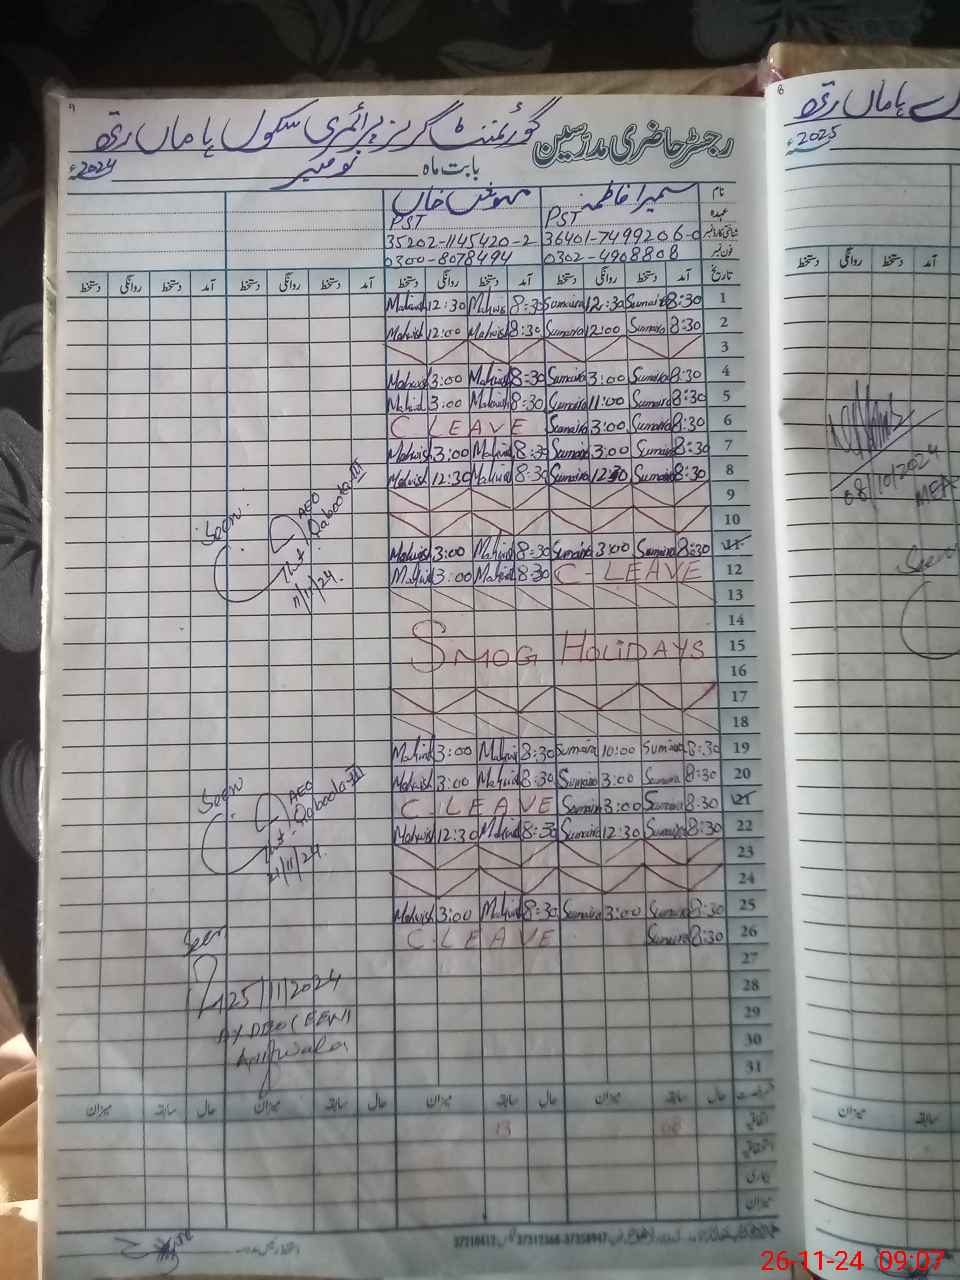 گورنمنٹ گرلز پرائمری سکول
رجسٹر حاضری مدرسین
2024ء نومبر بابت ماہ
نام سمیرا فاطمہ مہوش خاں
عہدہ PST PST
36401-7499206-0 35202-1145420-2
فون نمبر 0302-4908808 0300-8078494
تاریخ آمد دستخط روانگی دستخط آمد دستخط روانگی دستخط آمد دستخط روانگی دستخط آمد دستخط روانگی دستخط
Mahwish 12:30 Mahwish 8:30 Sumaira 12:30 Sumaira 8:30 1
Mahwish 12:00 Mahwish 8:30 Sumaira 12:00 Sumaira 8:30 2
3
Mahwish 3:00 Mahwish 8:30 Sumaira 3:00 Sumaira 8:30 4
Mahwish 3:00 Mahwish 8:30 Sumaira 11:00 Sumaira 8:30 5
C LEAVE Sumaira 3:00 Sumaira 8:30 6
Mahwish 3:00 Mahwish 8:30 Sumaira 3:00 Sumaira 8:30 7
Mahwish 12:30 Mahwish 8:30 Sumaira 12:30 Sumaira 8:30 8
9
10
Mahwish 3:00 Mahwish 8:30 Sumaira 3:00 Sumaira 8:30 11
Mahwish 3:00 Mahwish 8:30 C-LEAVE 12
13
14
SMOG HOLIDAYS 15
16
17
18
Mahwish 3:00 Mahwish 8:30 Sumaira 10:00 Sumaira 8:30 19
Mahwish 3:00 Mahwish 8:30 Sumaira 3:00 Sumaira 8:30 20
C-LEAVE Sumaira 3:00 Sumaira 8:30 21
Mahwish 12:30 Mahwish 8:30 Sumaira 12:30 Sumaira 8:30 22
23
24
Mahwish 3:00 Mahwish 8:30 Sumaira 3:00 Sumaira 8:30 25
C-LEAVE Sumaira 8:30 26
27
28
29
30
31
Seen
AEO
Qaboola III
11/11/24
Seen
AEO
Qaboola III
21/11/24
Seen
25/11/2024
حال سابقہ میزان حال سابقہ میزان حال سابقہ میزان
اتفاقی 08 13
بیماری
میزان
8
2025
08/10/2024
MEA
Seen
آمد روانگی دستخط
سابقہ میزان
26-11-24 09:07